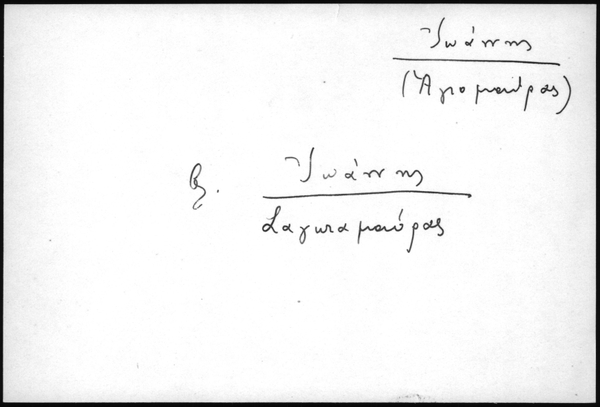 Ἰωάννης
(Ἁγιομαύρας)
βλ. Ἰωάννης
Σαγκταμαύρας